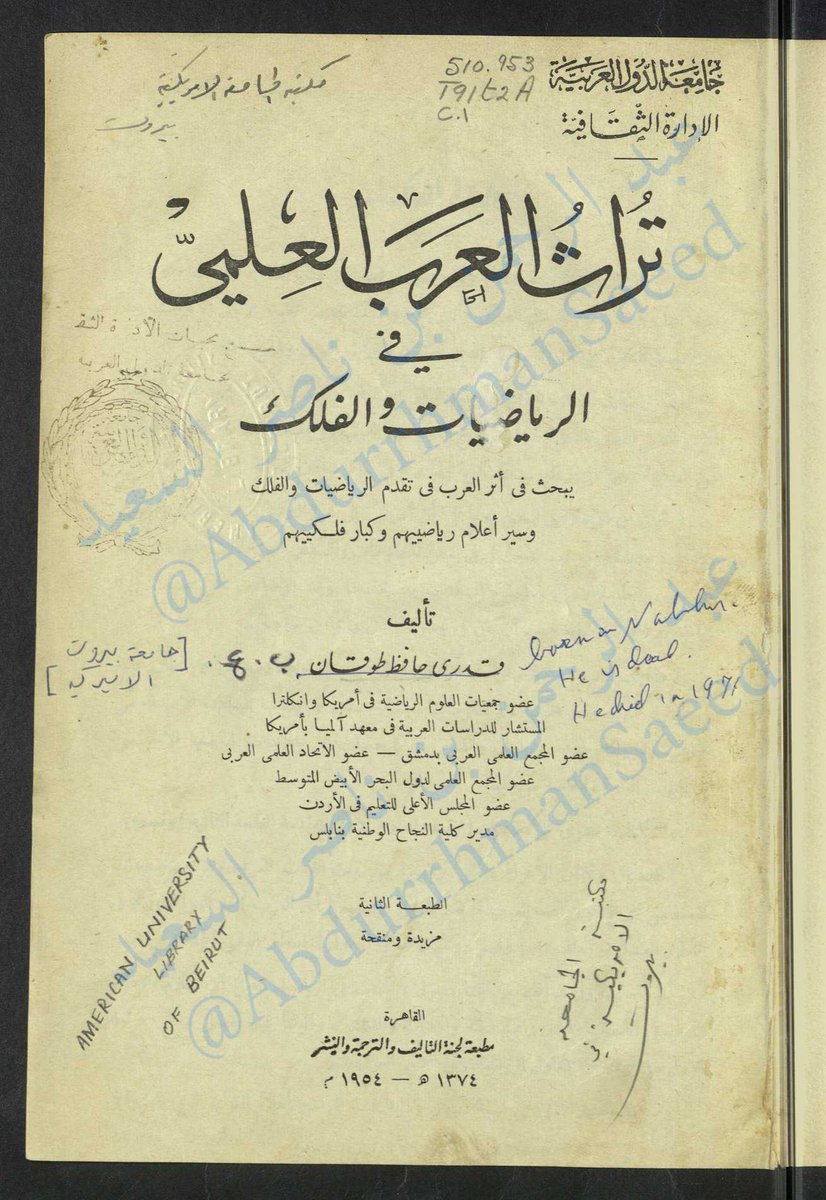 جامعة الدول العربية
الإدارة الثقافية
510.953
T91t2A
C.1
مكتبة الجامعة الامريكية
بيروت
تراث العرب العلمي
في
الرياضيات والفلك
يبحث فى أثر العرب فى تقدم الرياضيات والفلك
وسير أعلام رياضييهم وكبار فلكييهم
تأليف
قدرى حافظ طوقان ب. ع. [جامعة بيروت
الاميركية]
born in Nablus.
He is dead.
He died in 1971
عضو جمعيات العلوم الرياضية فى أمريكا وانكلترا
المستشار للدراسات العربية فى معهد آلميا بأمريكا
عضو المجمع العلمى العربى بدمشق — عضو الاتحاد العلمى العربى
عضو المجمع العلمى لدول البحر الأبيض المتوسط
عضو المجلس الأعلى للتعليم فى الأردن
مدير كلية النجاح الوطنية بنابلس
الطبعة الثانية
مزيدة ومنقحة
القاهرة
مطبعة لجنة التأليف والترجمة والنشر
١٣٧٤ ه — ١٩٥٤ م
AMERICAN UNIVERSITY
LIBRARY
OF BEIRUT
مكتبة الجامعة
الامريكية في
بيروت
عبد الرحمن بن ناصر السعيد
@AbdurrhmanSaeed
عبد الرحمن بن ناصر السعيد
@AbdurrhmanSaeed